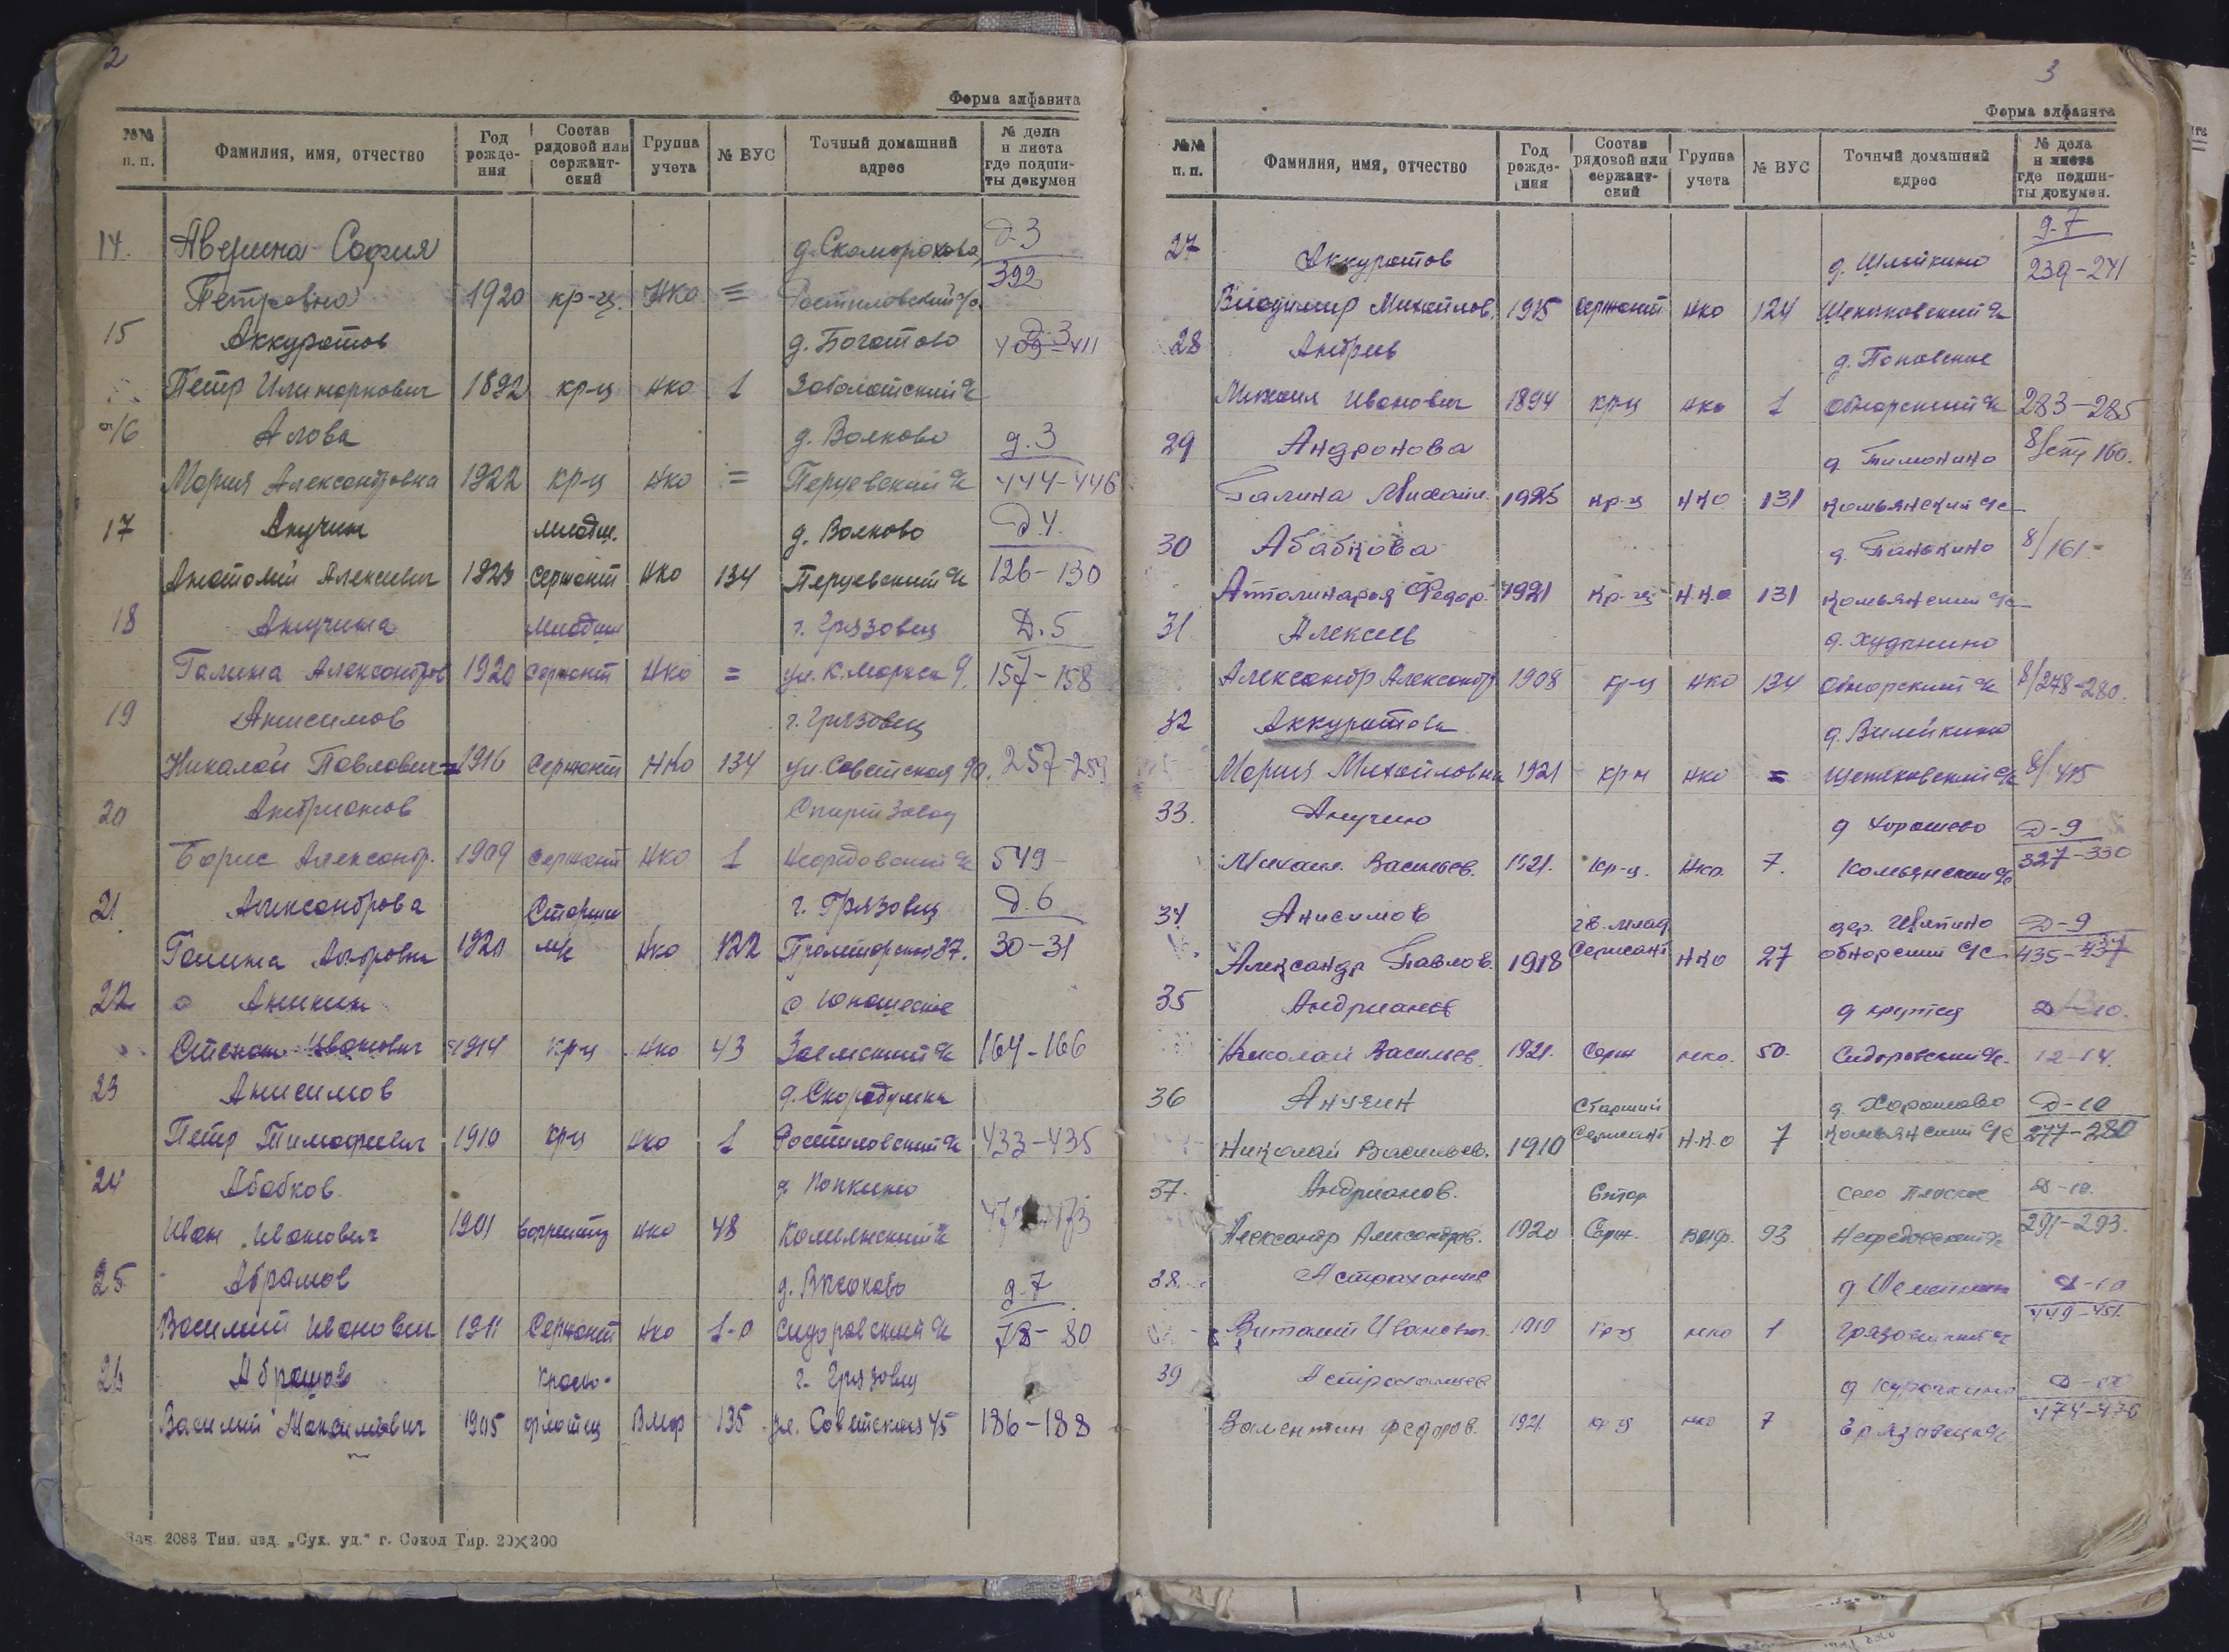 2
Форма алфавита
№№ п. п. Фамилия, имя, отчество Год рождения Состав рядовой или сержантский Группа учета № ВУС Точный домашний адрес № дела и листа где подшиты докумен
14. Аверина София д. Скоморохово Д-3
Петровна 1920 кр-ц. НКО = Ростиловский с/с 392
15 Аккуратов д. Богатово Д-3
Петр 1892 кр-ц НКО 1 Заболотский с/с 409-411
16 Алова д. Волково д. 3
Мария Александровна 1922 кр-ц НКО = Перцевский с/с 444-446
17 Анучин младш. д. Волково Д 4.
Анатолий Алексеевич 1923 Сержант НКО 134 Перцевский с/с 126-130
18 Анучина младш г. Грязовец Д. 5
Галина Александров 1920 сержант НКО = ул. К. Маркса 9. 157-158
19 Анисимов г. Грязовец
Николай Павлович 1916 Сержант НКО 134 ул. Советская 90. 257-259
20 Андрианов Спиртзавод
Борис Александр. 1909 сержант НКО 1 Нефедовский с/с 549-
21. Александрова Старши г. Грязовец Д. 6
Галина 1920 НКО 122 Пролетарская 37. 30-31
22 Аникин с Юношеское
Степан Иванович 1914 кр-ц НКО 43 Заемский с/с 164-166
23 Анисимов д. Скородумка
Петр Тимофеевич 1910 кр-ц НКО 1 Ростиловский с/с 433-435
24 Абабков д. Попкино
Иван Иванович 1901 НКО 48 Комьянский с/с
25 Абрамов д. Высоково д-7
Василий Иванович 1911 Сержант НКО 1-0 Сидоровский с/с 78-80
26 Абрамов красно- г. Грязовец
Василий Максимович 1905 флотец Вмф 135 ул. Советская 45 186-188
Зак. 2083 Тип. изд. „Сух. уд.“ г. Сокол Тир. 20×200
3
Форма алфавита
№№ п. п. Фамилия, имя, отчество Год рождения Состав рядовой или сержантский Группа учета № ВУС Точный домашний адрес № дела и листа где подшиты докумен.
27 Аккуратов д. Шлыйкино д-7
Владимир Михайлов. 1915 сержант НКО 124 Щекаковский с/с 239-241
28 Андреев д. Поповское
Михаил Иванович 1894 кр-ц НКО 1 Обнорский с/с 283-285
29 Андронова д. Тимонино 8/стр 160.
Галина Михайл. 1925 кр-ц НКО 131 Комьянский с/с
30 Абабкова д. Панькино 8/161-
Апполинария Федор. 1921 кр-ц Н.К.О 131 Комьянский с/с
31 Алексеев д. Худынино
Александр Александр 1908 кр-ц НКО 134 Обнорский с/с 8/278-280.
32 Аккуратова
Мария Михайловна 1921 кр-ц НКО = 8/415
33. Анучин д Хорошево Д-9
Михаил. Васильев. 1921. кр-ц. НКО. 7. Комьянский с/с 327-330
34. Анисимов гв. млад дер. Цвятино Д-9
Александр Павлов. 1918 Сержант НКО 27 Обнорский с/с 435-437
35 Андрианов д крутец Д-10.
Николай Васильев. 1921. Серж НКО. 50. Сидоровский с/с. 12-14.
36 Анучин Старший д. Хорошево Д-10
Николай Васильев. 1910 Сержант Н.К.О 7 Комьянский с/с 277-280
37. Андрианов. село Плоское Д-10.
Александр Александров. 1920 Серж. вмф. 93 Нефедовский с/с 291-293.
38. Астраханцев Д-10
Виталий Иванович. 1919 кр-ц НКО 1 449-451.
39 Астраханцев д Курочкино Д-10
Валентин Федоров. 1921. кр-ц НКО 7 Грязовецк с/с 474-476